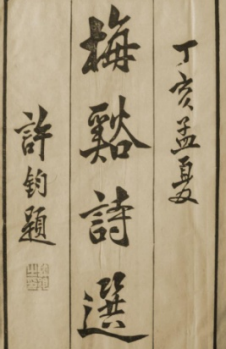 丁亥孟夏
梅谿詩選
許鈞題